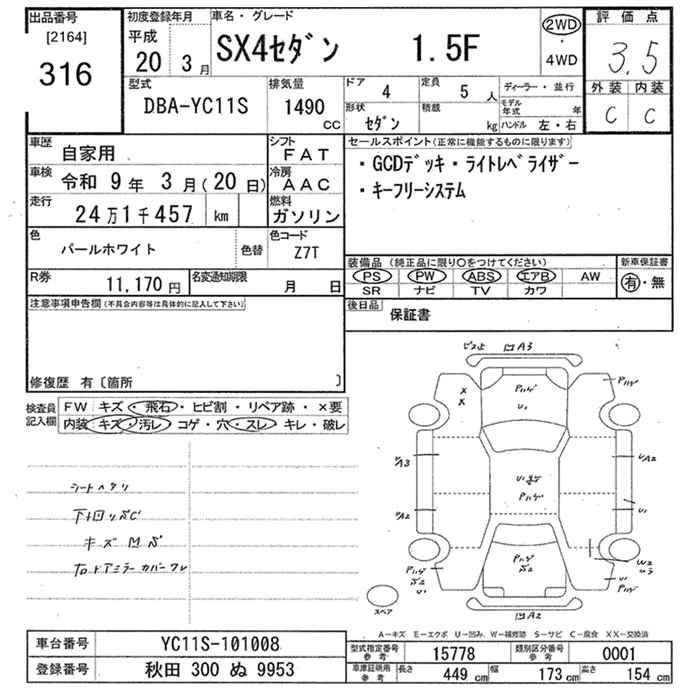 出品番号
[2164]
316
初度登録年月
平成
20 3月
車名・グレード
SX4セダン 1.5F
2WD
・
4WD
評価点
3.5
外装 内装
C C
型式
DBA-YC11S
排気量
1490
CC
ドア 4
定員 5人
形状
セダン
積載 kg
ディーラー・並行
モデル年式 年
ハンドル 左・右
車歴
自家用
シフト
FAT
車検 令和 9年 3月(20日)
冷房
AAC
走行
24万1千457 km
燃料
ガソリン
色
パールホワイト
色替
色コード
Z7T
R券 11,170円
名変通知期限 月 日
セールスポイント(正常に機能するものに限ります)
・GCDデッキ・ライトレベライザー
・キーフリーシステム
装備品 (純正品に限り○をつけてください)
新車保証書
PS PW ABS エアB AW
SR ナビ TV カワ
有・無
後日品
保証書
注意事項申告欄(不具合内容等は具体的に記入して下さい)
修復歴 有〔箇所 〕
検査員記入欄
FW キズ・飛石・ヒビ割・リペア跡・×要
内装 キズ・汚レ・コゲ・穴・スレ・キレ・破レ
シートヘタリ
キズ凹
右ドアミラーカバーワレ
A3
A3
A2
A2
U1
U1
W2
U1
A2
スペア
A-キズ E-エクボ U-凹み W-補修跡 S-サビ C-腐食 XX-交換済
車台番号 YC11S-101008
登録番号 秋田 300 ぬ 9953
型式指定番号 参考 15778
類別区分番号 参考 0001
車庫証明用 参考 長さ 449cm 幅 173cm 高さ 154cm